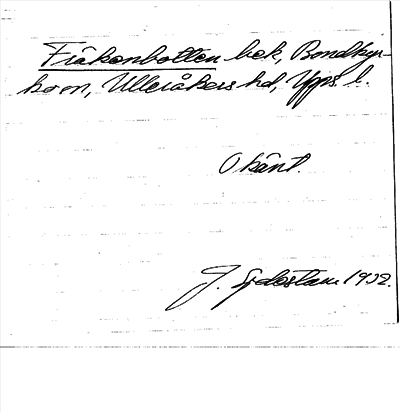 Fräkenbotten bek, Bondkyr-
ko sn, Ulleråkers hd, Upps. l.
Okänt.
J. Sjöstam 1932.